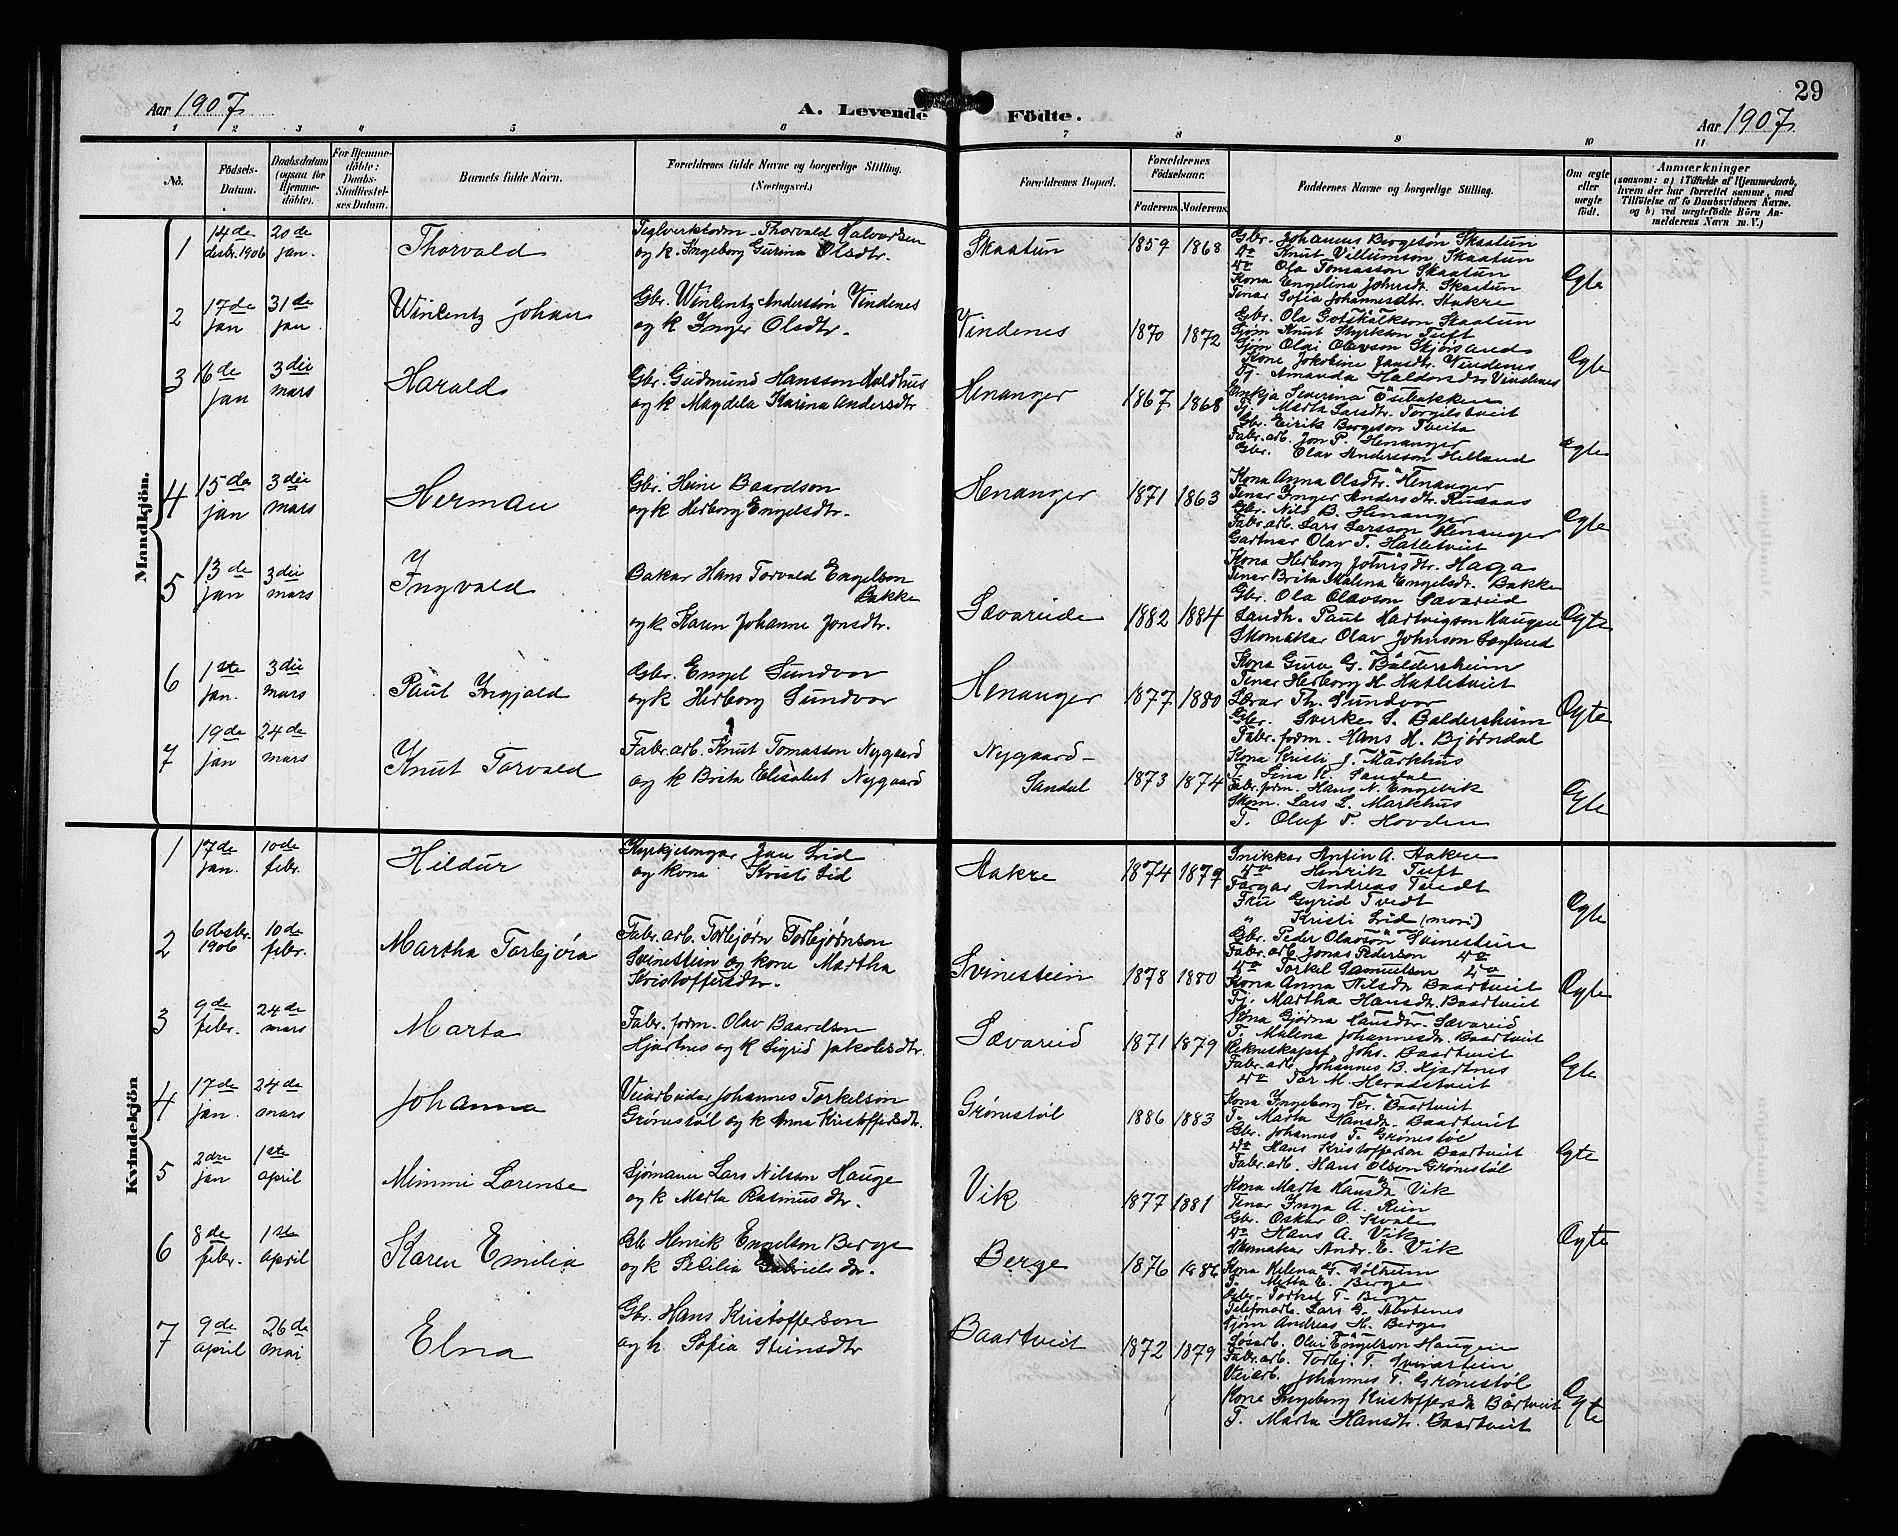 29
Aar 1907
A. Levende Födte.
Aar 1907
1 2 3 4 5 6 7 8 9 10 11
No.
Födsels-Datum.
Daabsdatum (ogsaa for Hjemme-döbte).
For Hjemme-döbte: Daabs-Stadfæstel-ses Datum.
Barnets fulde Navn.
Forældrenes fulde Navne og borgerlige Stilling. (Næringsvei.)
Forældrenes Bopæl.
Forældrenes Födselsaar.
Faderens. Moderens.
Faddernes Navne og borgerlige Stilling.
Om ægte eller uægte födt.
Anmærkninger
(saasom: a) i Tilfælde af Hjemmedaab, hvem der har forrettet samme, med Tilföielse af to Daabsvidners Navne. og b) ved uægtefödte Börn An-melderens Navn m. V.)
Mandkjön.
1 14de desbr. 1906 20de jan. Thorvald
Teglverksform. Thorvald Halvorsen
og k. Ingeborg Gurina Olsdtr.
Skaatun 1859 1868
Gbr. Johannes Børgeson Skaatun
do Knut Villumson Skaatun
do Ola Tomasson Skaatun
Kona Engelina Johnsdtr. Skaatun
Tenar Sofia Johannesdtr. Hakre
Egte
2 17de jan 31de jan. Wincentz Johan
Gbr. Wincentz Andersson Vindenes
og k Inger Olsdtr.
Vindenes 1870 1872
Gbr. Ola Gotskalkson Skaatun
Sjøm Knut Styrkson Tuft
Sjøm Olai Olavson Skjørsand
Kone Jokobine Jansdt. Vindenes
Tj. Amanda Haldorsdtr Vindenes
Egte
3 16de jan 3die mars Harald
Gbr. Gudmund Hansson Holdhus
og k Magdela Karina Andersdtr
Henanger 1867 1868
Enkja Severina Osebakken
Tj. Marta Larsdtr. Torgilstveit
Gbr. Eirik Børgeson Tveita
Fabr.arb. Jon P. Henanger
Gbr. Olav Andersson Helland
Egte
4 15de jan 3die mars Herman
Gbr. Heine Baardson
og k Herborg Engelsdtr.
Henanger 1871 1863
Kona Anna Olsdtr. Henanger
Tenar Inger Andersdtr. Rusaas
Gbr. Nils B. Henanger
Fabr.arb. Lars Larsson Henanger
Gartnar Olav T. Hatletveit
Egte
5 13de jan 3die mars Ingvald
Bakar Hans Torvald Engelson
Bakke
og k Karen Johanne Jonsdtr.
Sævareide 1882 1884
Kona Herborg Johnsdtr. Haga
Tenar Brita Malena Engelsdtr. Bakke
Gbr. Ola Olavson Sævareid
Landh. Paul Hartvigson Haugen
Skomakar Olav Johnson Sægland
Egte
6 1ste jan. 3die mars Paul Ingjald
Gbr. Engel Sundvor
og k Herborg Sundvor
Henanger 1877 1880
Kona Guro G. Baldersheim
Tenar Herborg H. Hatletveit
Lærar Th. Sundvor
Gbr. Sverke S. Baldersheim
Fabr.form. Hans H. Bjørndal
Egte
7 19de jan 24de mars Knut Torvald
Fabr.arb. Knut Tomasson Nygaard
og k Brita Elisabet Nygaard
Nygaard-
Sandal 1873 1874
Kona Kristi J. Markhus
T. Lina K. Sandal
Fabr.form. Hans N. Engevik
Skom. Lars L. Markhus
T. Oluf T. Hovden
Egte
Kvindekjön
1 17de jan. 10de febr. Hildur
Kyrkjesongar Jan Lid
og kona Kristi Lid
Hakre 1874 1879
Snikkar Anfin A. Hakre
do Henrik Tuft
Fargar Andreas Tvedt
Fru Gyrid Tvedt
" Kristi Lid (mori)
Egte
2 6 desbr. 1906 10de febr. Martha Torbjøra
Fabr.arb. Torbjørn Torbjørnson
Svinestein og kone Martha
Kristoffersdtr.
Svinestein 1878 1880
Gbr. Peder Olavson Svinestein
Fabr.arb. Jonas Pederson do
do Torkel Samuelsen do
Kona Anna Nilsdtr Baartveit
Tj. Martha Hansdtr. Baartveit
Egte
3 9de febr. 24de mars Marta
Fabr. form. Olav Baardson
Hjartnes og k Sigrid Jakobsdtr.
Sævareid 1871 1879
Kona Gjørna Hansdtr. Sævareid
T. Malena Johannesdtr. Baartveit
Rekneskapsf. Johs. Baartveit
Fabr.arb. Johannes B. Hjartnes
do Tor M. Heradstveit
Egte
4 17de jan. 24de mars Johanna
Veiarbeidar Johannes Torkelson
Grønestøl og k Anna Kristoffersdtr.
Grønestøl 1886 1883
Kona Ingeborg Kr. Baartveit
T. Marta Hansdtr. Baartveit
Gbr. Johannes T. Grønestøl
do Hans Kristofferson Baartveit
Fabr.arb. Hans Olson Grønestøl
Egte
5 2dre jan 1ste april Mimmi Lorense
Sjømann Lars Nilsson Hauge
og k Marta Rasmusdtr.
Vik 1877 1881
Kona Marta Hansdtr Vik
Tenar Inga A. Rein
Gbr. Oskar O. Kvale
do Hans A. Vik
Skomakar Andr. E. Vik
Egte
6 8de febr. 1ste april Karen Emilia
Gb Henrik Engelson Berge
og k Secilia Gabrielsdtr.
Berge 1876 1886
Kona Helena T. Solheim
T. Metta E. Berge
Gbr. Torkel T. Berge
Telefonarb. Lars G. Abotenes
Sjøm Andreas H. Berge
7 9de april 26de mai Elna
Gbr. Hans Kristofferson
og k Sofia Steinsdtr
Baartveit 1872 1879
Olai Engelson Haugen
Fabr.arb. Torbj. T. Svinestein
Veiarb. Johannes T. Grønestøl
Kona Ingeborg Kristoffersdtr Bårtveit
T. Marta Hansdtr. Baartveit
Egte